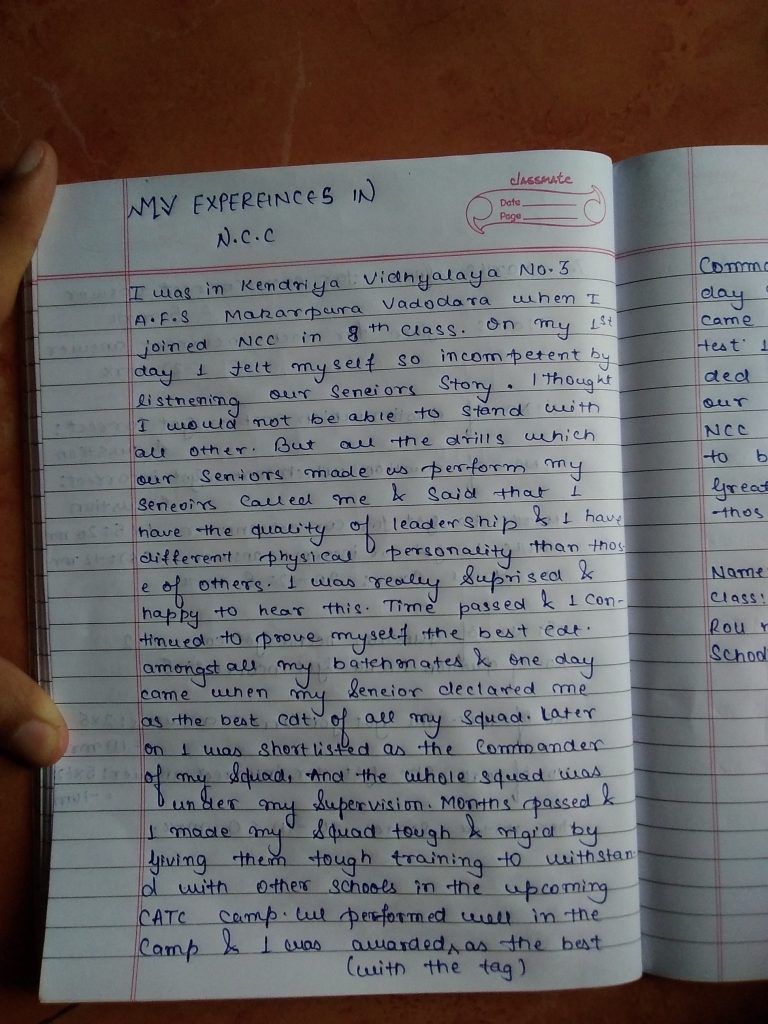 MY EXPEREINCES IN
N.C.C
classmate
Date
Page
I was in Kendriya Vidhyalaya No.3
A.F.S Makarpura Vadodara when I
joined NCC in 8th class. On my 1st
day I felt myself so incompetent by
listnening our Seneiors Story. I thought
I would not be able to stand with
all other. But all the drills which
our Seniors made us perform my
Seneoirs called me & Said that I
have the quality of leadership & I have
different physical personality than thos
e of others. I was really Suprised &
happy to hear this. Time passed & I con-
tinued to prove myself the best cdt.
amongst all my batchmates & one day
came when my Seneior declared me
as the best cdt. of all my squad. Later
on I was shortlisted as the Commander
of my Squad, And the whole squad was
under my Supervision. Months passed &
I made my Squad tough & rigid by
giving them tough training to withstan
d with other schools in the upcoming
CATC camp. We performed well in the
Camp & I was awarded^ as the best
(with the tag)
Comma
day
came
test
ded
our
NCC
to b
Great
thos
Name
Class:
Roll n
School